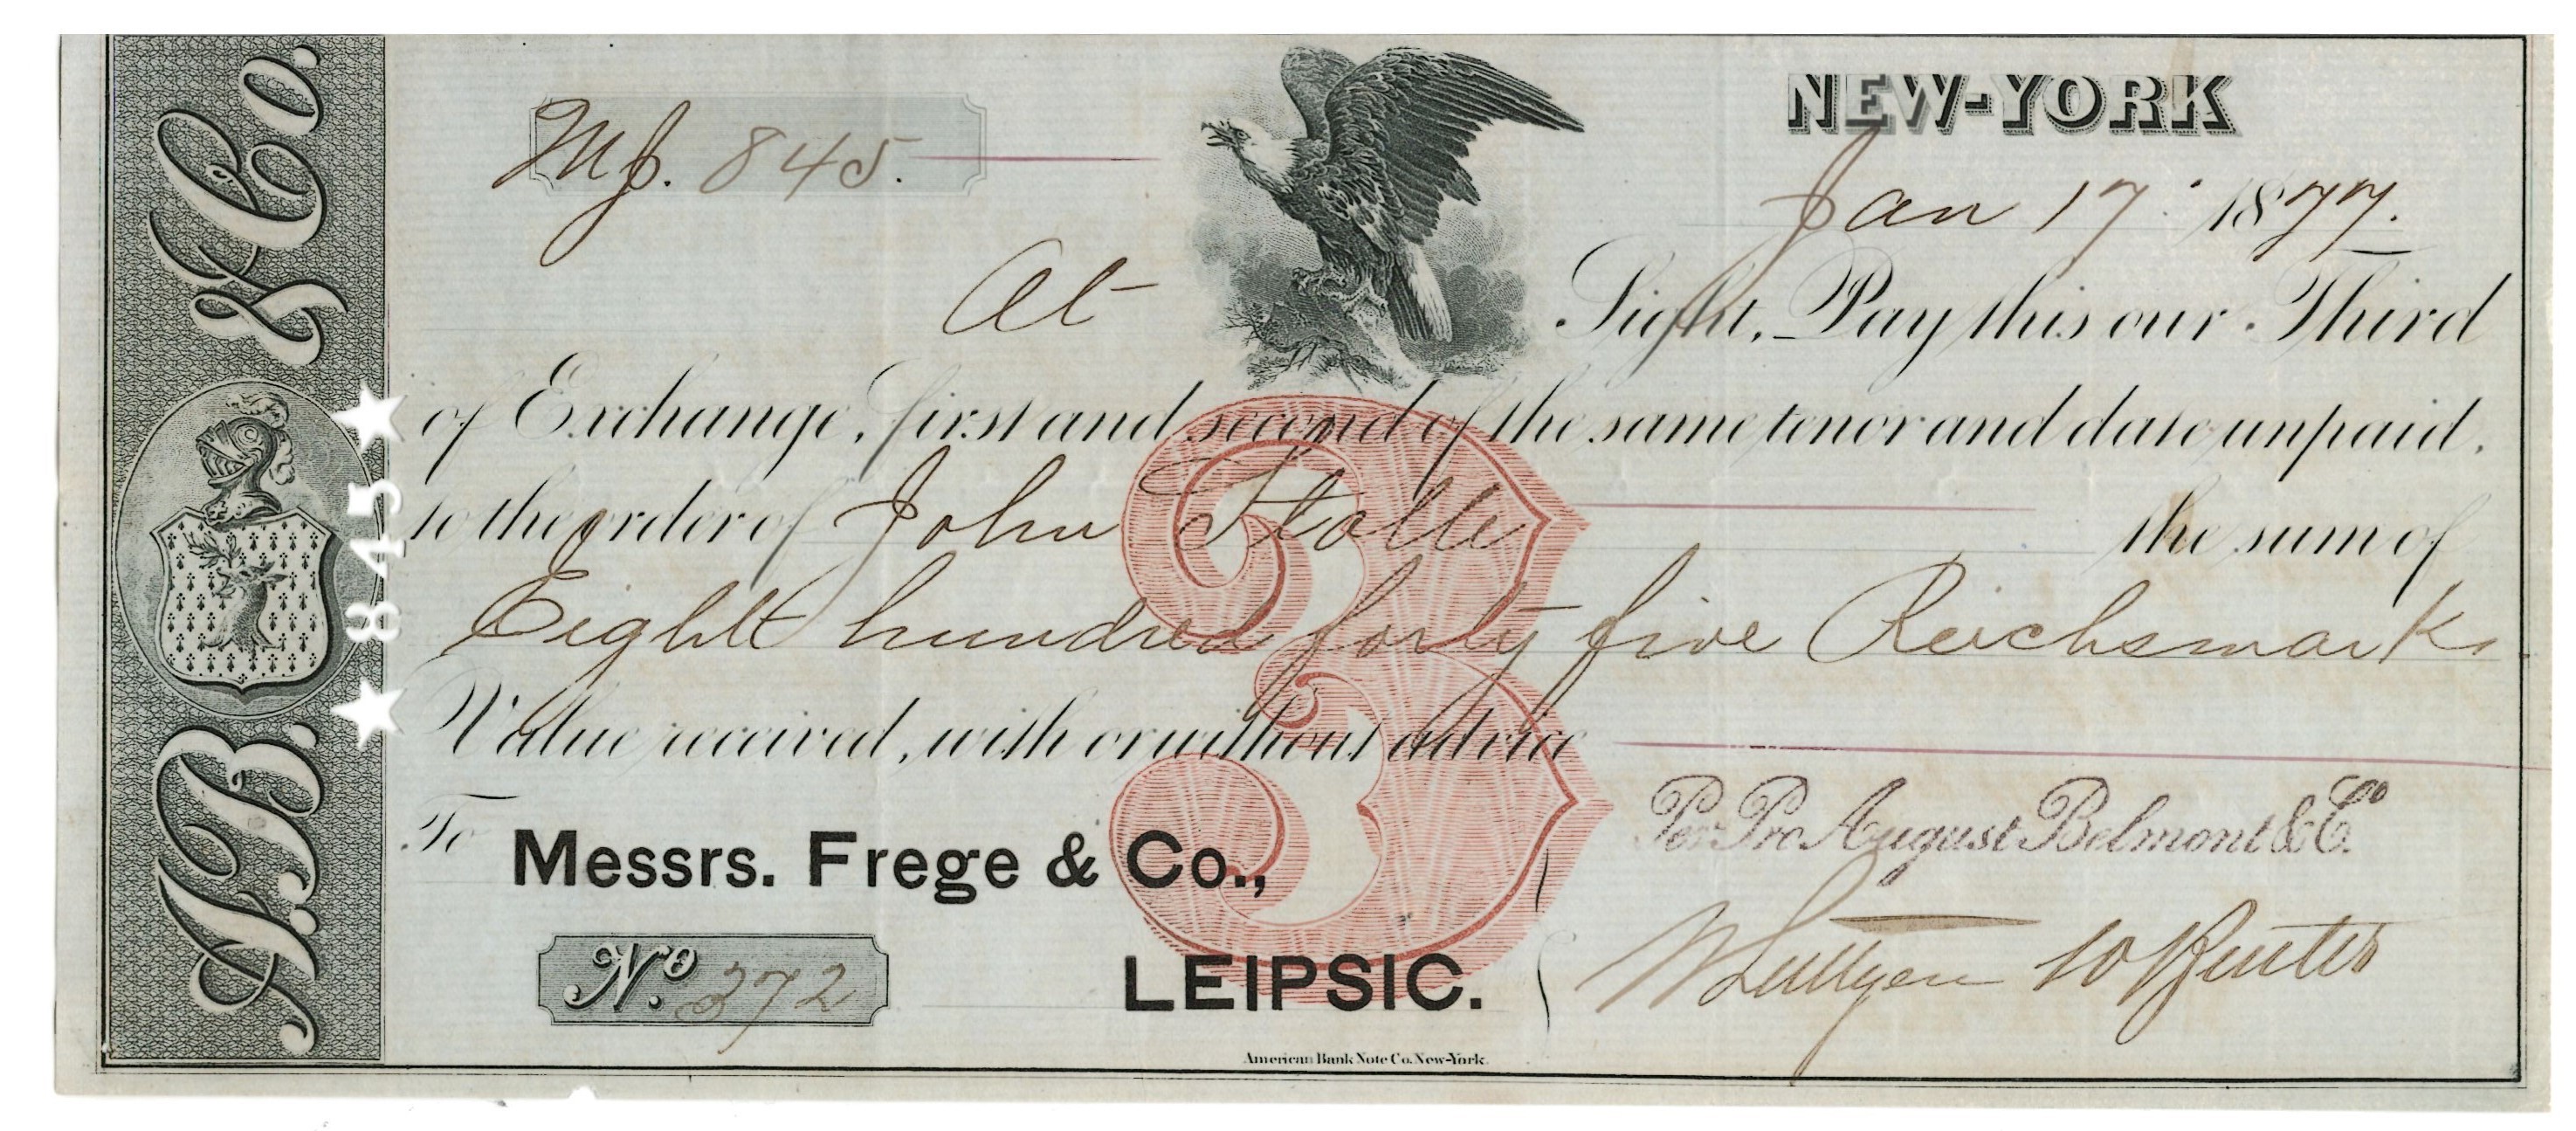 A.B. & Co.
★ 845 ★
NEW-YORK
Mk. 845.
Jan 17. 1877.
At Sight, Pay this our Third
of Exchange, first and second of the same tenor and date unpaid,
to the order of John Stolle the sum of
Eight hundred forty five Reichsmarks
Value received, with or without advice
To Messrs. Frege & Co.,
LEIPSIC.
Per Pro August Belmont & Co.
No. 372
American Bank Note Co. New-York.